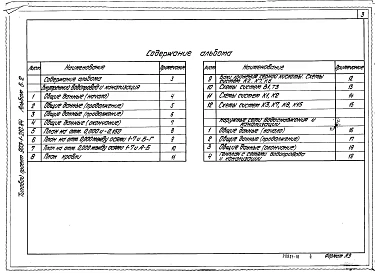 3
Содержание альбома
Лист Наименование Примечание
Содержание альбома 3
Внутренний водопровод и канализация
1 Общие данные (начало) 4
2 Общие данные (продолжение) 5
3 Общие данные (продолжение) 6
4 Общие данные (окончание) 7
5 План на отм. 0,000 и 8
6 План на отм. 0,000 между осями 1-7 и В-Г 9
7 План на отм. 0,000 между осями 1-7 и А-Б 10
8 План кровли 11
Лист Наименование Примечание
9 Схемы систем 12
10 Схемы систем В1, Т3 13
11 Схемы систем К1, К2 14
12 Схемы систем К3, 15
Наружные сети водоснабжения и канализации
1 Общие данные (начало) 16
2 Общие данные (продолжение) 17
3 Общие данные (окончание)
4 водопровода и канализации
Типовой проект
Альбом
Формат А3